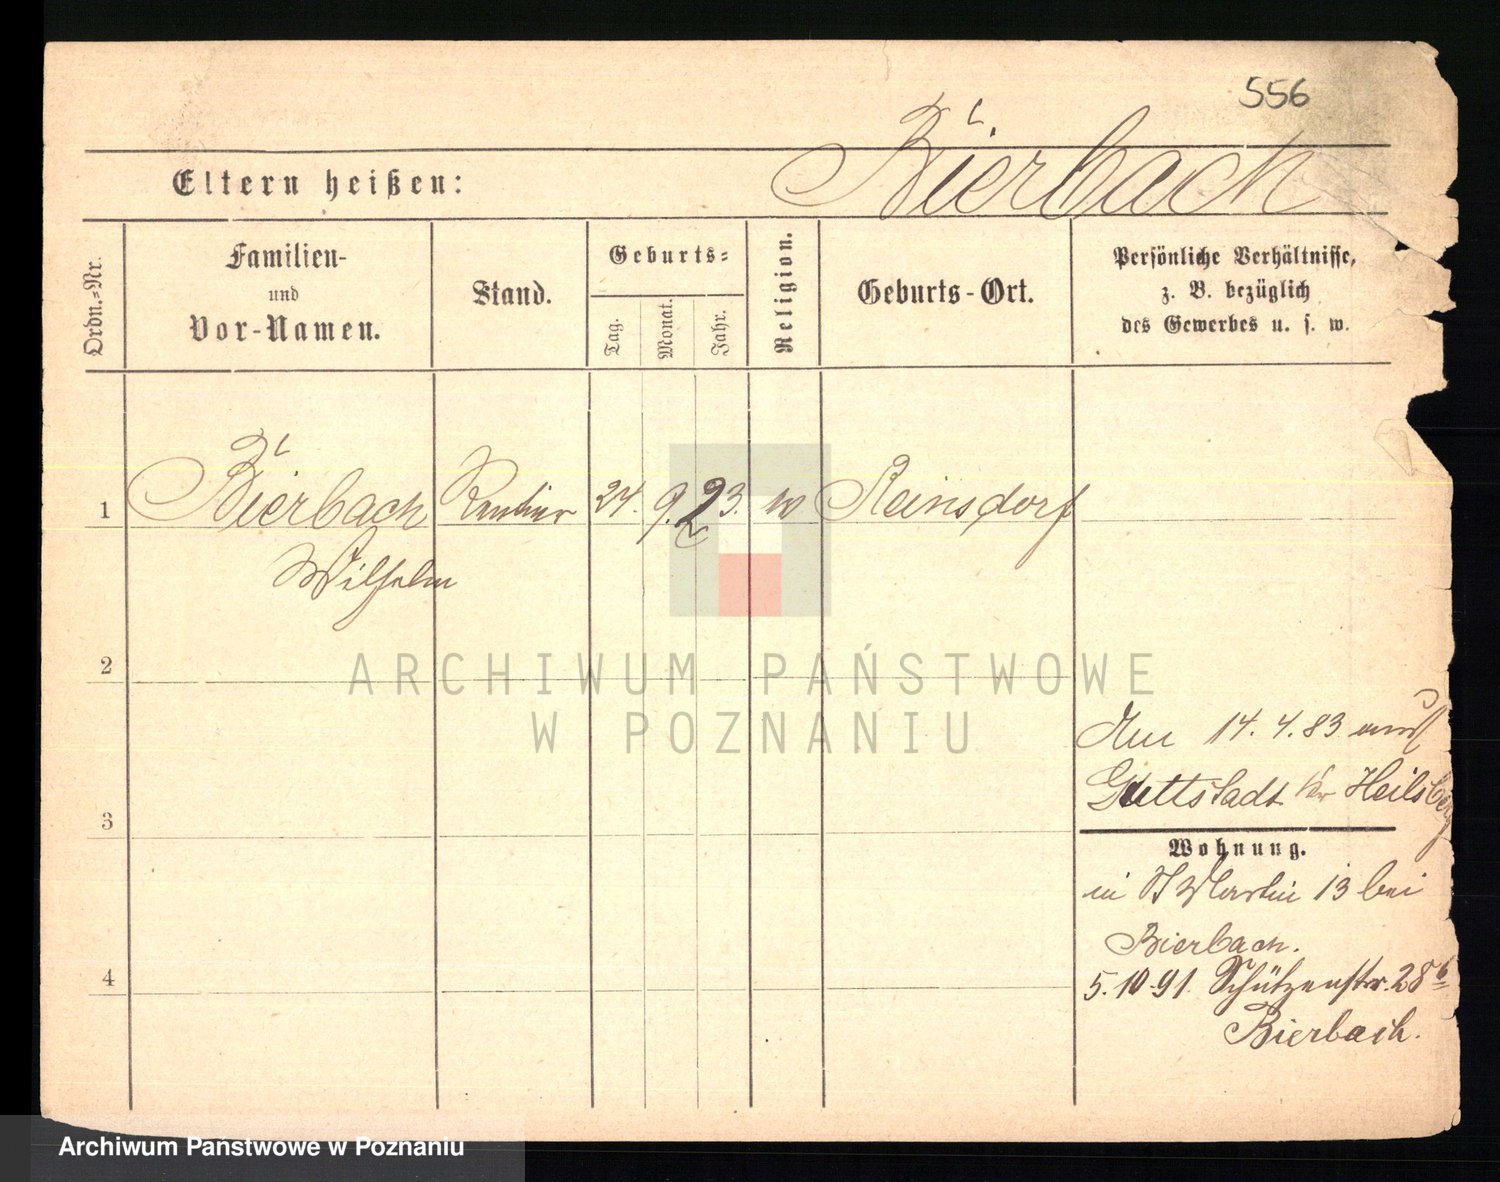 556
Bierbach
Eltern heißen:
Ordn.-Nr.
Familien-
und
Vor-Namen.
Stand.
Geburts-
Tag.
Monat.
Jahr.
Religion.
Geburts-Ort.
Persönliche Verhältnisse,
z. B. bezüglich
des Gewerbes u. s. w.
1 Bierbach Rentier 24. 9. 23. Reinsdorf
Wilhelm
2
ARCHIWUM PAŃSTWOWE
W POZNANIU
14. 4. 83
Guttstadt Kr Heilsberg
3
Wohnung.
in St Martin 13 bei
Bierbach.
4
5. 10. 91. Schützenstr. 28b
Bierbach.
Archiwum Państwowe w Poznaniu